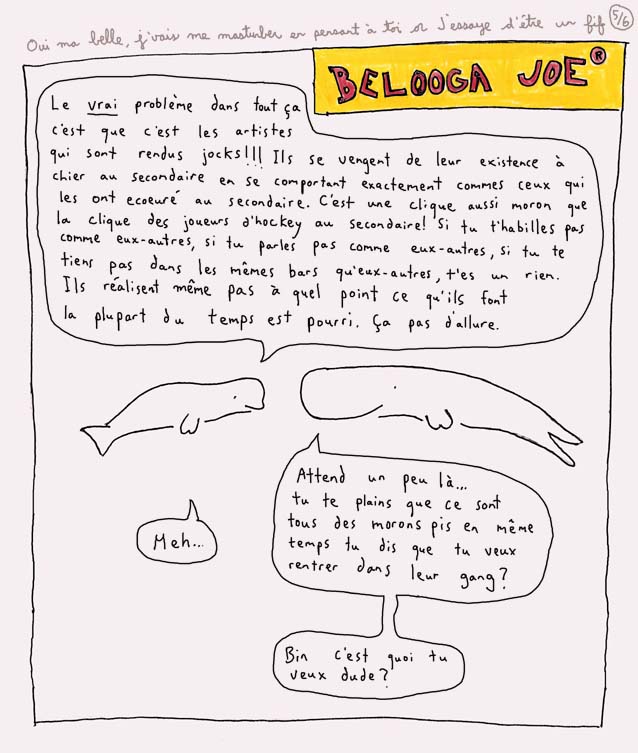 Oui ma belle, j'vais me masturber en pensant à toi or J'essaye d'être un fif 5/6
BELOOGA JOE®
Le vrai problème dans tout ça
c'est que c'est les artistes
qui sont rendus jocks!!! Ils se vengent de leur existence à
chier au secondaire en se comportant exactement commes ceux qui
les ont ecoeuré au secondaire. C'est une clique aussi moron que
la clique des joueurs d'hockey au secondaire! Si tu t'habilles pas
comme eux-autres, si tu parles pas comme eux-autres, si tu te
tiens pas dans les mêmes bars qu'eux-autres, t'es un rien.
Ils réalisent même pas à quel point ce qu'ils font
la plupart du temps est pourri. Ça pas d'allure.
Attend un peu là...
tu te plains que ce sont
tous des morons pis en même
temps tu dis que tu veux
rentrer dans leur gang?
Meh...
Bin c'est quoi tu
veux dude?